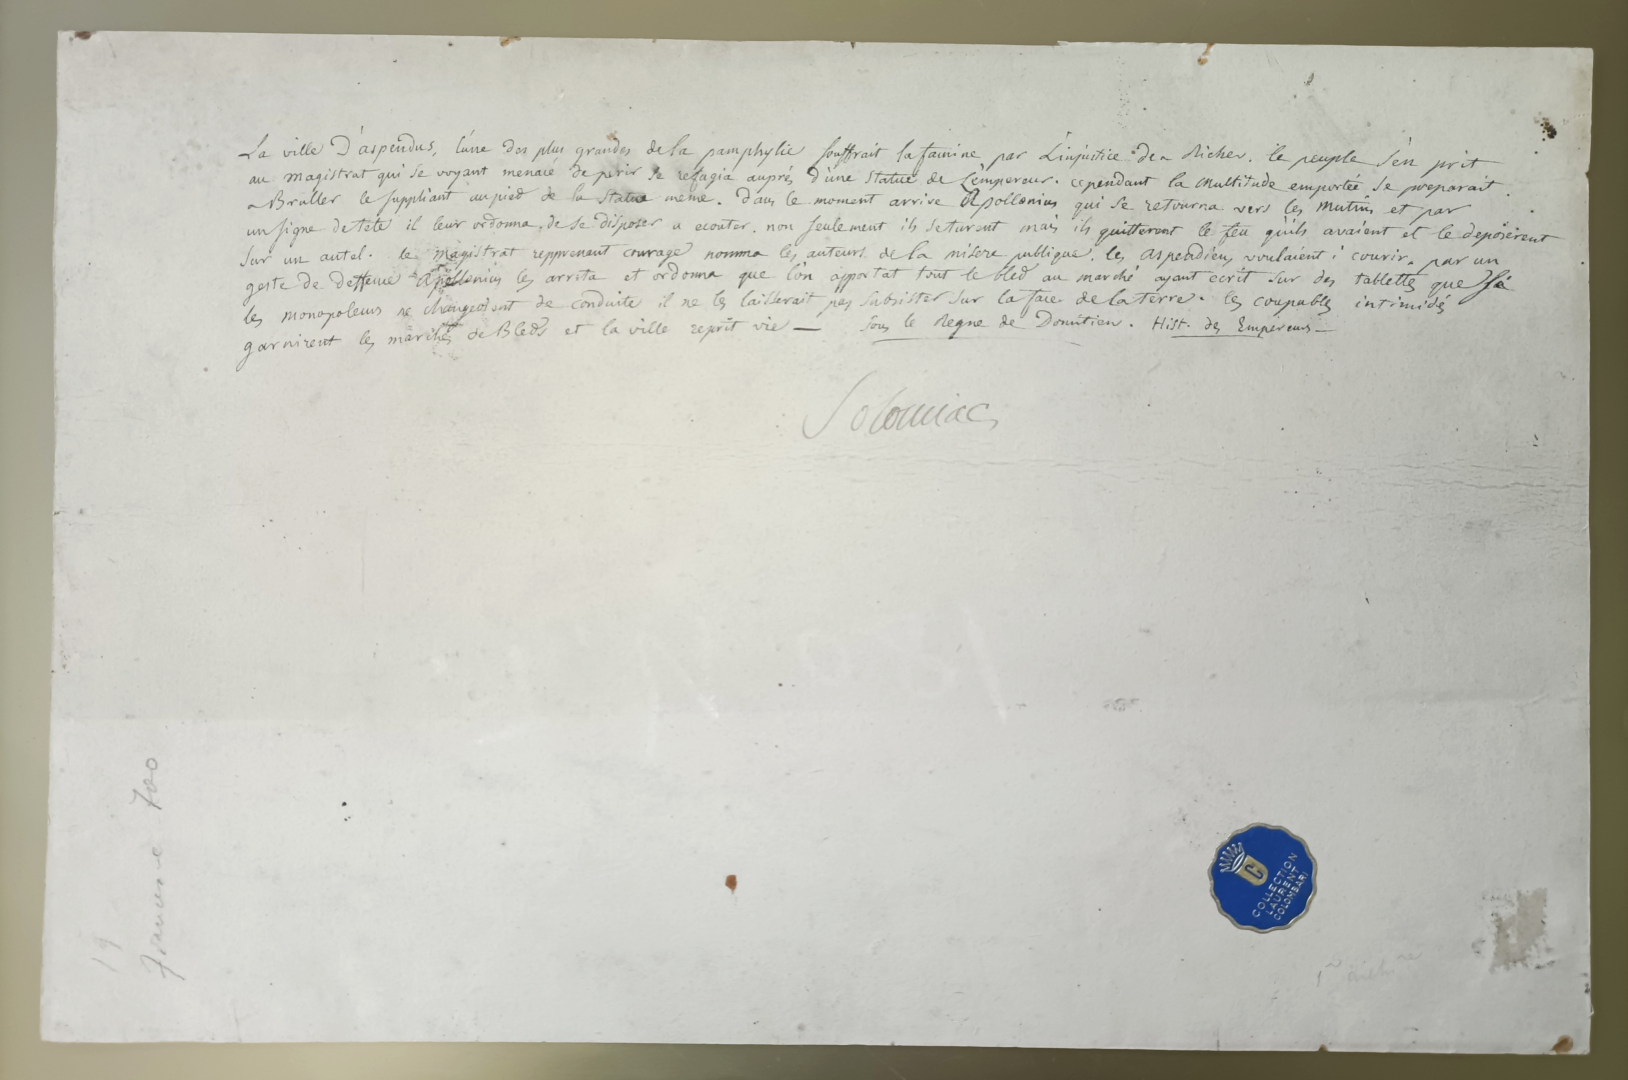 La ville D'aspendus, l'une des plus grandes de la pamphylie souffrait la famine par L'injustice des Riches. le peuple s'en prit
au magistrat qui se voyant menacé de perir se refugia auprés d'une Statue de L'empereur. cependant la Multitude emportée se preparait
a Brûller le suppliant au pied de la Statue même. dans le moment arrive Apollonius qui se retourna vers les Mutins et par
un signe de tete il leur ordonna de se disposer a ecouter. non seulement ils seturent mais ils quitterent le feu qu'ils avaient et le deposèrent
Sur un autel. le Magistrat repprenant courage nomma les auteurs de la misere publique. les Aspendiens voulaient i courir. par un
geste de deffense Apollonius les arrita et ordonna que l'on apportat tout le bled au marché ayant ecrit sur des tablettes que Si
les monopoleurs ne changeoient de conduite il ne les laisserait pas subsister sur la face de la terre. les coupables intimidés
garnirent les marchés de Bleds et la ville reprit vie — Sous le Regne de Domitien. Hist. des Empereurs —
Solomiac
19
Francine 700
C
COLLECTION
LAURENT
COLOMBARI